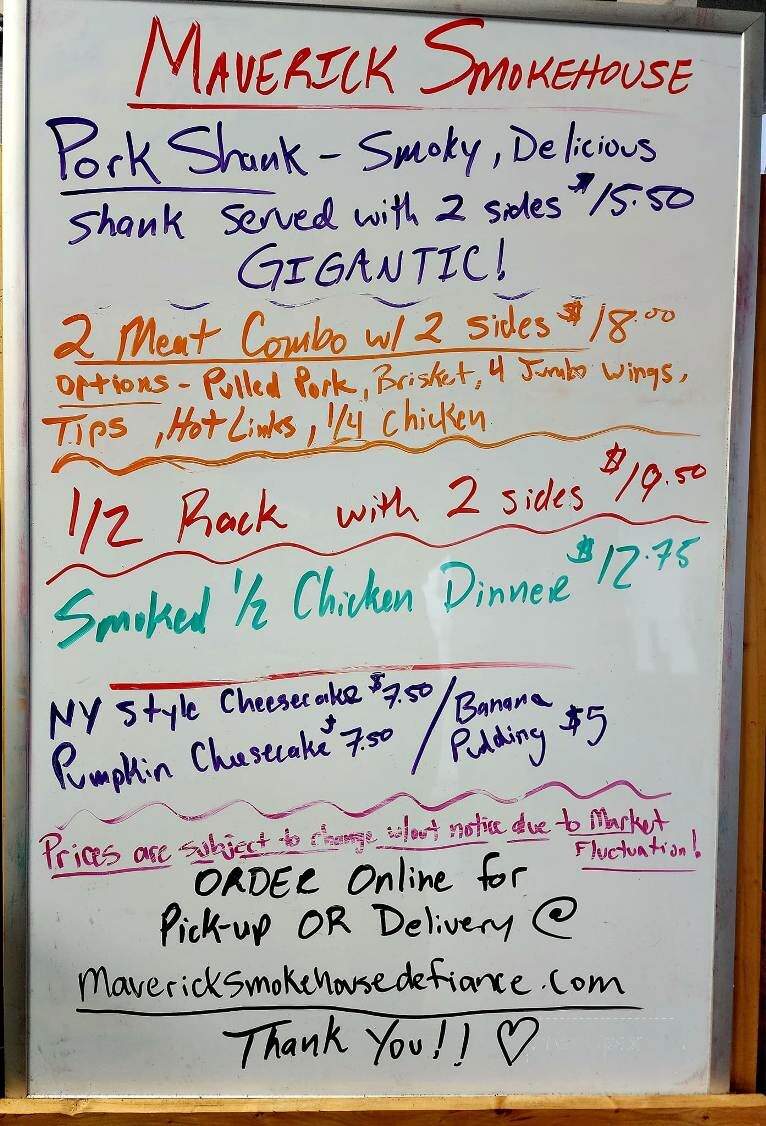 MAVERICK SMOKEHOUSE
Pork Shank - Smoky, Delicious
shank served with 2 sides $15.50
GIGANTIC!
2 Meat Combo w/ 2 sides $18.00
OPTIONS - Pulled Pork, Brisket, 4 Jumbo wings,
TIPS, Hot Links, 1/4 Chicken
1/2 Rack with 2 sides $19.50
Smoked 1/2 Chicken Dinner $12.75
NY Style Cheesecake $7.50 / Banana
Pumpkin Cheesecake $7.50 Pudding $5
Prices are subject to change w/out notice due to Market
Fluctuation!
ORDER Online for
Pick-up OR Delivery @
mavericksmokehousedefiance.com
Thank You!! ♡